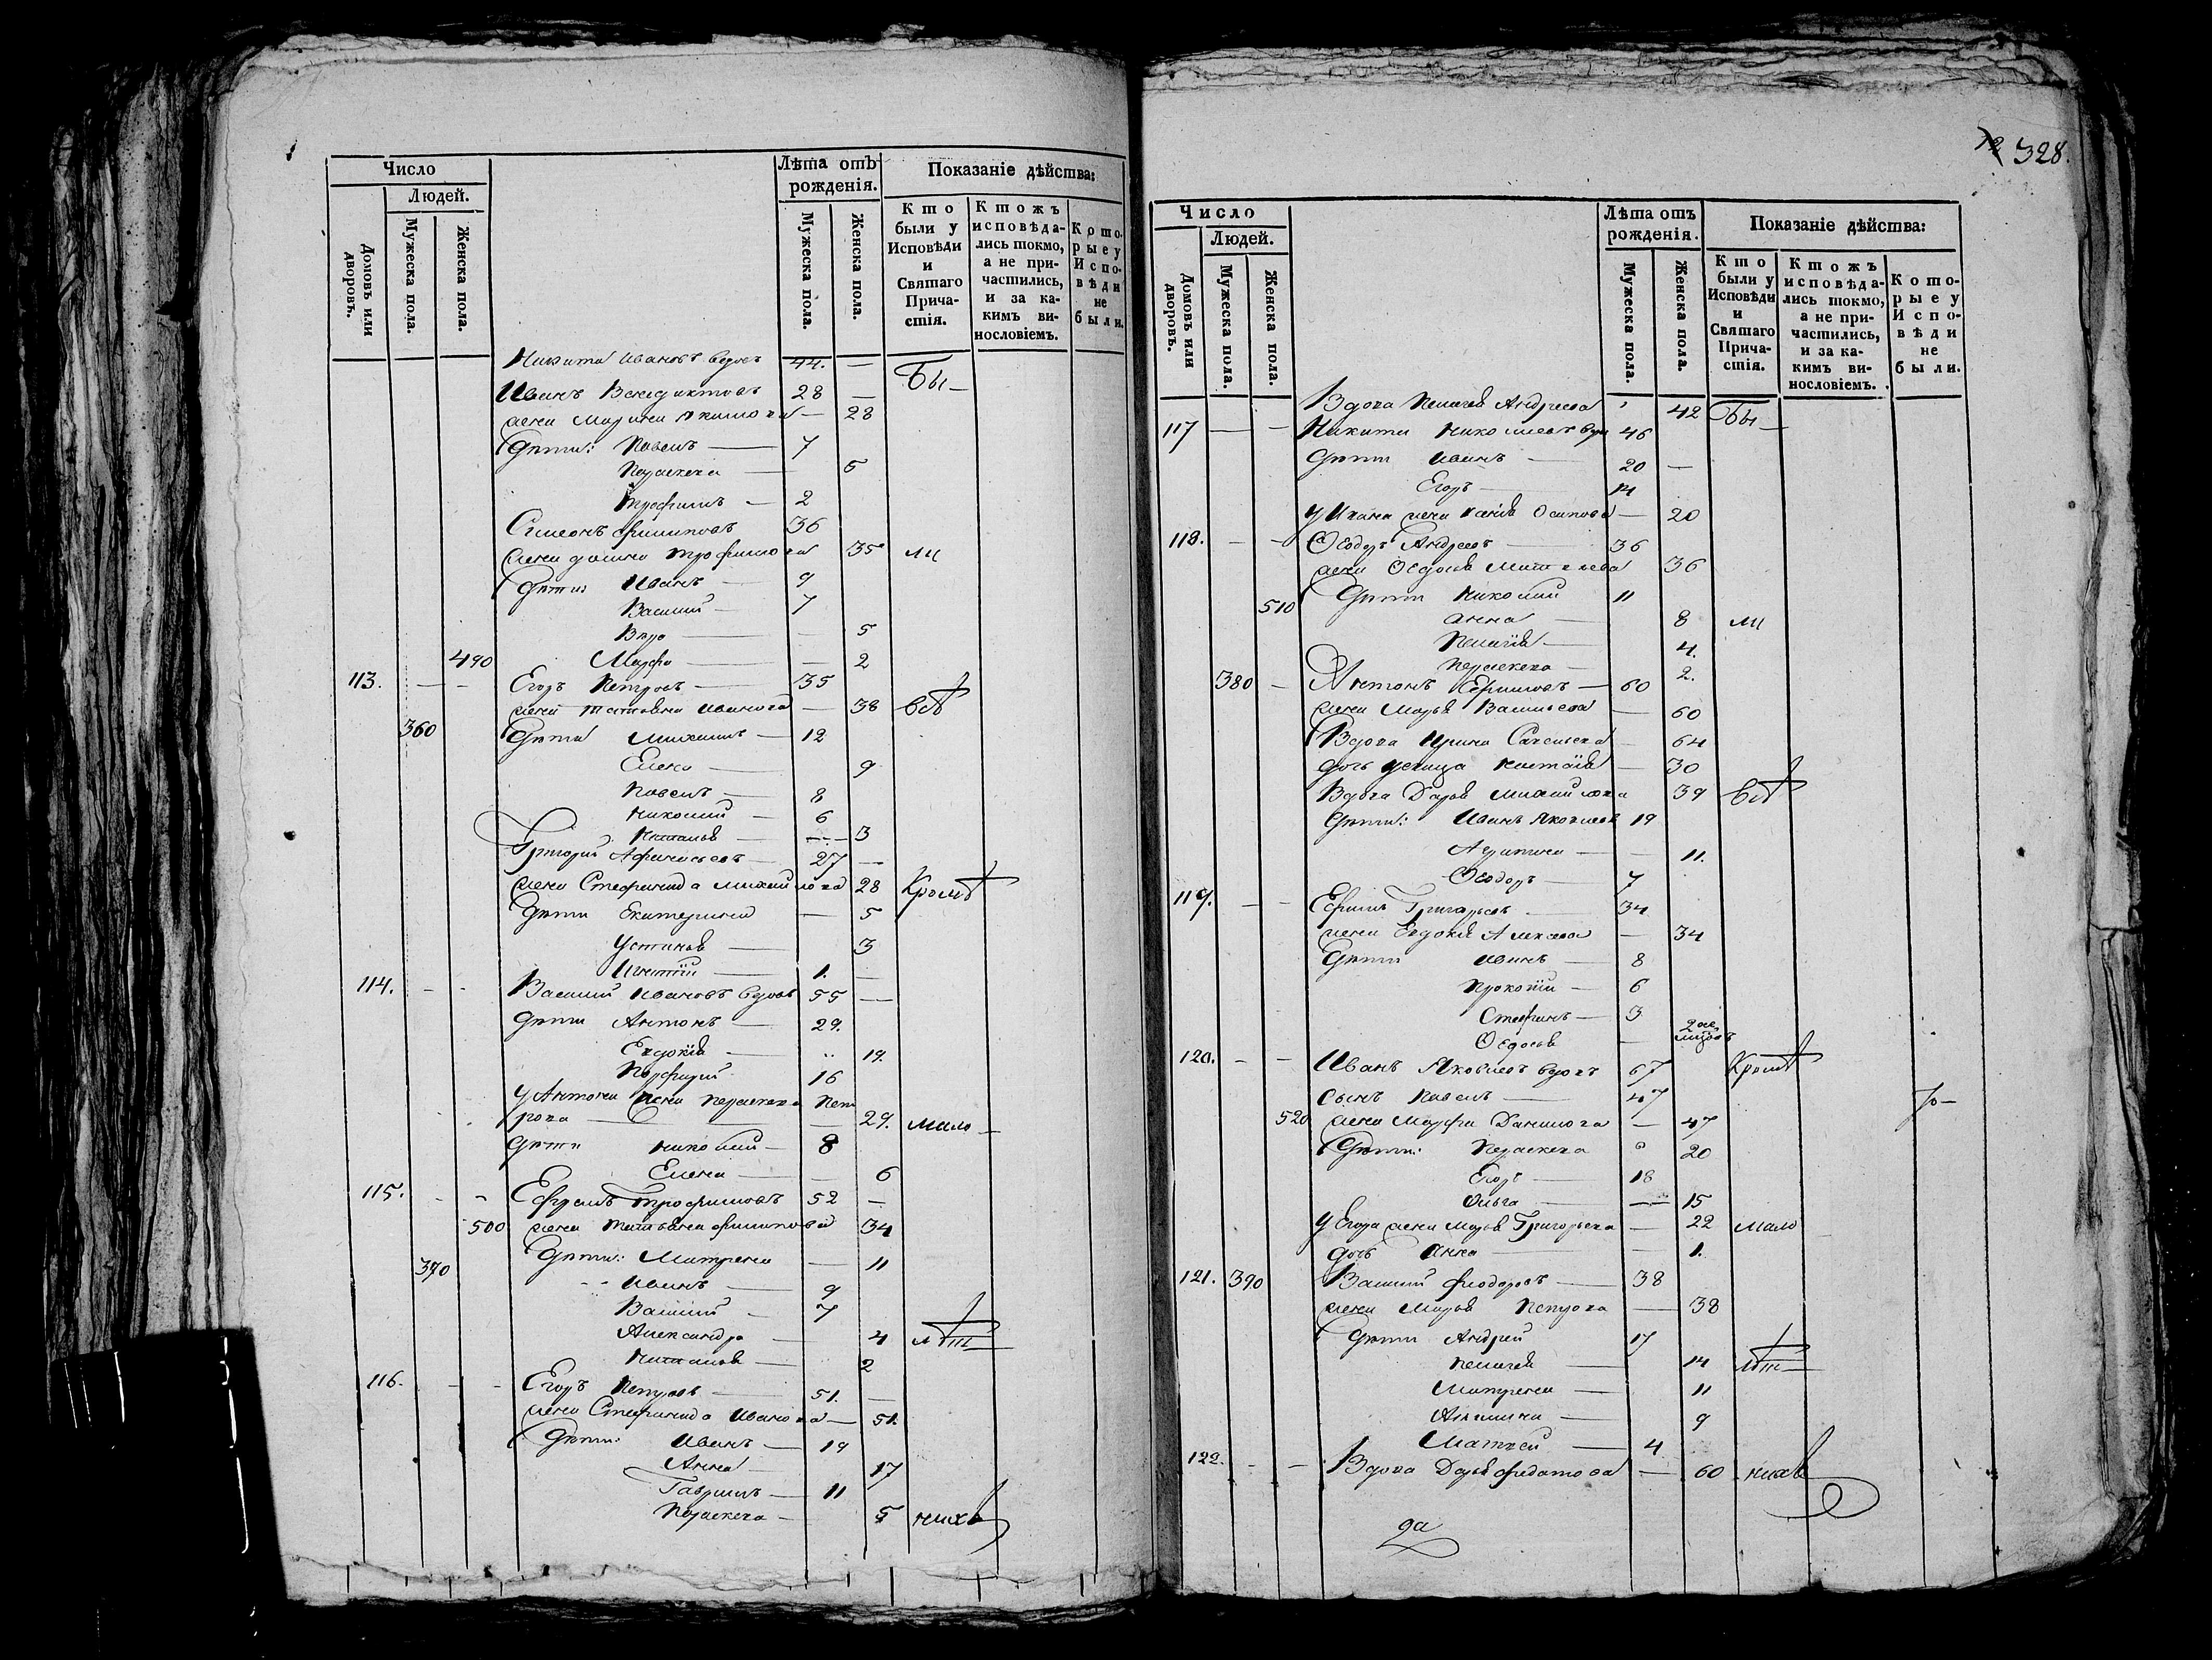 Число
Людей.
Домовъ или дворовъ.
Мужеска пола.
Женска пола.
Лѣта отъ рожденія.
Мужеска пола.
Женска пола.
Показаніе дѣйства:
Кто были у Исповѣди и Святаго Причастія.
Ктожъ исповѣдались токмо, а не причастились, и за какимъ винословіемъ.
Которые у Исповѣди не были.
Никита Ивановъ вдовъ 44. — Бы—
Иванъ Венедиктовъ 28 —
жена Марина Акимова — 28
Дѣти: Павелъ — 7
Параскева — 5
Трофимъ — 2
Симеонъ Филиповъ 36
жена Домна Трофимова 35 ли
Дѣти Иванъ — 9
Василій — 7
Вѣра — 5
490 Марфа — — 2
113. — — Егоръ Петровъ — 35
жена Татьяна Иванова — 38 всѣ
360 Дѣти Михаилъ — 12
Елена — 9
Павелъ — 8
Николай — 6
Наталья — — 3
Григорій Афанасьевъ — 27 —
жена Стефанида Михайлова 28 Кромѣ
Дѣти Екатерина — 5
Устинья — 3
Игнатій — 1. —
114. - - Василій Ивановъ вдовъ 55 —
Дѣти Антонъ — 29.
Евдокія — 19.
Порфирій 16
У Антона жена Параскева Пет
рова — — 29. мало—
Дѣти Николай — 8
Елена — — 6
115. - - Ефремъ Трофимовъ 52 —
500 жена Татьяна Филипова 34
370 Дѣти: Матрена — 11
Иванъ — 9
Василій — 7
Александра — 4 лѣт
Наталья — 2
116. — - Егоръ Петровъ — 51. —
жена Стефанида Иванова — 51.
Дѣти: Иванъ — 19
Анна — 17
Гавріилъ — 11
Параскева — 5 нихъ
328.
Число
Людей.
Домовъ или дворовъ.
Мужеска пола.
Женска пола.
Лѣта отъ рожденія.
Мужеска пола.
Женска пола.
Показаніе дѣйства:
Кто были у Исповѣди и Святаго Причастія.
Ктожъ исповѣдались токмо, а не причастились, и за какимъ винословіемъ.
Которые у Исповѣди не были.
Вдова Пелагея Андреева 42 Бы—
117 — — Никита Николаевъ вдов 46
Дѣти Иванъ — 20 —
Егоръ — 14
У Ивана жена Ксенія Осипова — 20
118. - - Ѳеодоръ Андреевъ — 36
жена Ѳедосья Матвѣева 36
510 Дѣти Николай 11
Анна — 8 ли
Пелагія — 4.
Параскева — 2.
380 — Антонъ Ефимовъ — 60
жена Марья Васильева — 60
Вдова Ирина Савельева — 64
дочь дѣвица Настасія — 30
Вдова Дарья Михайлова 39 всѣ
Дѣти: Иванъ Яковлевъ 19
Агрипина — — 11.
Ѳеодоръ — 7
119. - - Ефимъ Григорьевъ — 34
жена Евдокія Алексеева — 34
Дѣти Иванъ — 8
Прокопій — 6
Стефанъ — 3
Ѳедосья —
120. - - Иванъ Яковлевъ вдовъ 67 Кромѣ
Сынъ Павелъ — 47
520 жена Марфа Данилова — 47
Дѣти: Параскева 20
Егоръ — 18
Ольга — — 15
У Егора жена Марья Григорьева — 22 мало
дочь Анна — — 1.
121. 390 Василій Феодоровъ — 38
жена Марья Петрова — 38
Дѣти Андрей 17
Пелагея — 14 лѣт
Матрена — 11
Акилина — 9
Матвей — 4
122. - - Вдова Дарья Филатова — 60 нихъ